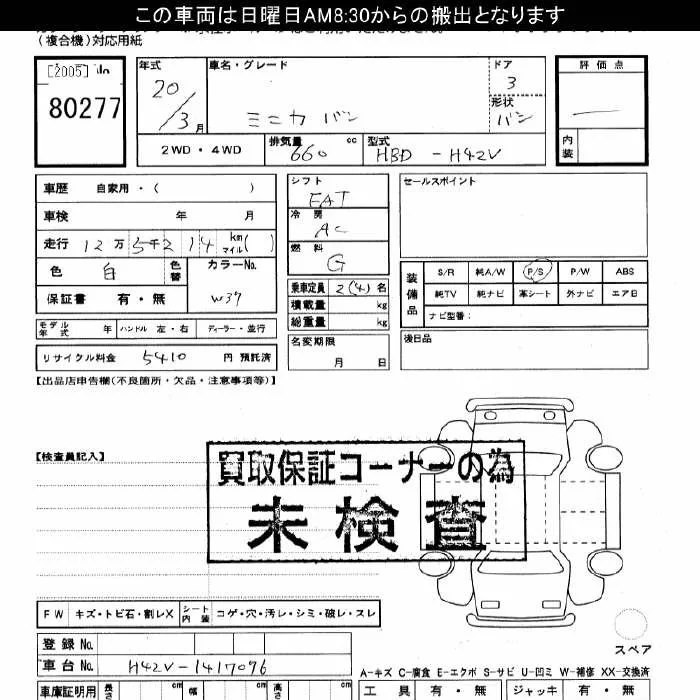 この車両は日曜日AM8:30からの搬出となります
(複合機)対応用紙
[2005]
80277
年式
20/3月
車名・グレード
ミニカ バン
ドア
3
形状
バン
評価点
内装
2WD・4WD
排気量
660 cc
型式
HBD-H42V
車歴 自家用・( )
車検 年 月
走行 12万5千214 km マイル( )
色 白 色替
カラーNo.
W37
保証書 有・無
モデル年式 年 ハンドル 左・右 ディーラー・並行
リサイクル料金 5410 円 預託済
シフト
FAT
冷房
AC
燃料
G
乗車定員 2(4)名
積載量 kg
総重量 kg
名変期限
月 日
セールスポイント
装備品
S/R 純A/W P/S P/W ABS
純TV 純ナビ 革シート 外ナビ エアB
ナビ型番:
後日品
【出品店申告欄(不良箇所・欠品・注意事項等)】
【検査員記入】
買取保証コーナーの為
未検査
FW キズ・トビ石・割レX シート内装 コゲ・穴・汚レ・シミ・破レ・スレ
スペア
登録No.
車台No. H42V-1417096
A-キズ C-腐食 E-エクボ S-サビ U-凹ミ W-補修 XX-交換済
車庫証明用 長さ cm 幅 cm 高さ cm
工具 有・無 ジャッキ 有・無